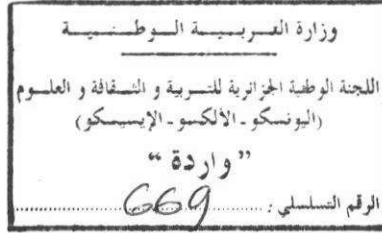 وزارة التربية الوطنية
اللجنة الوطنية الجزائرية للتربية و الثقافة و العلوم
(اليونسكو - الألكسو - الإيسيسكو)
" واردة "
الرقم التسلسلي : 669